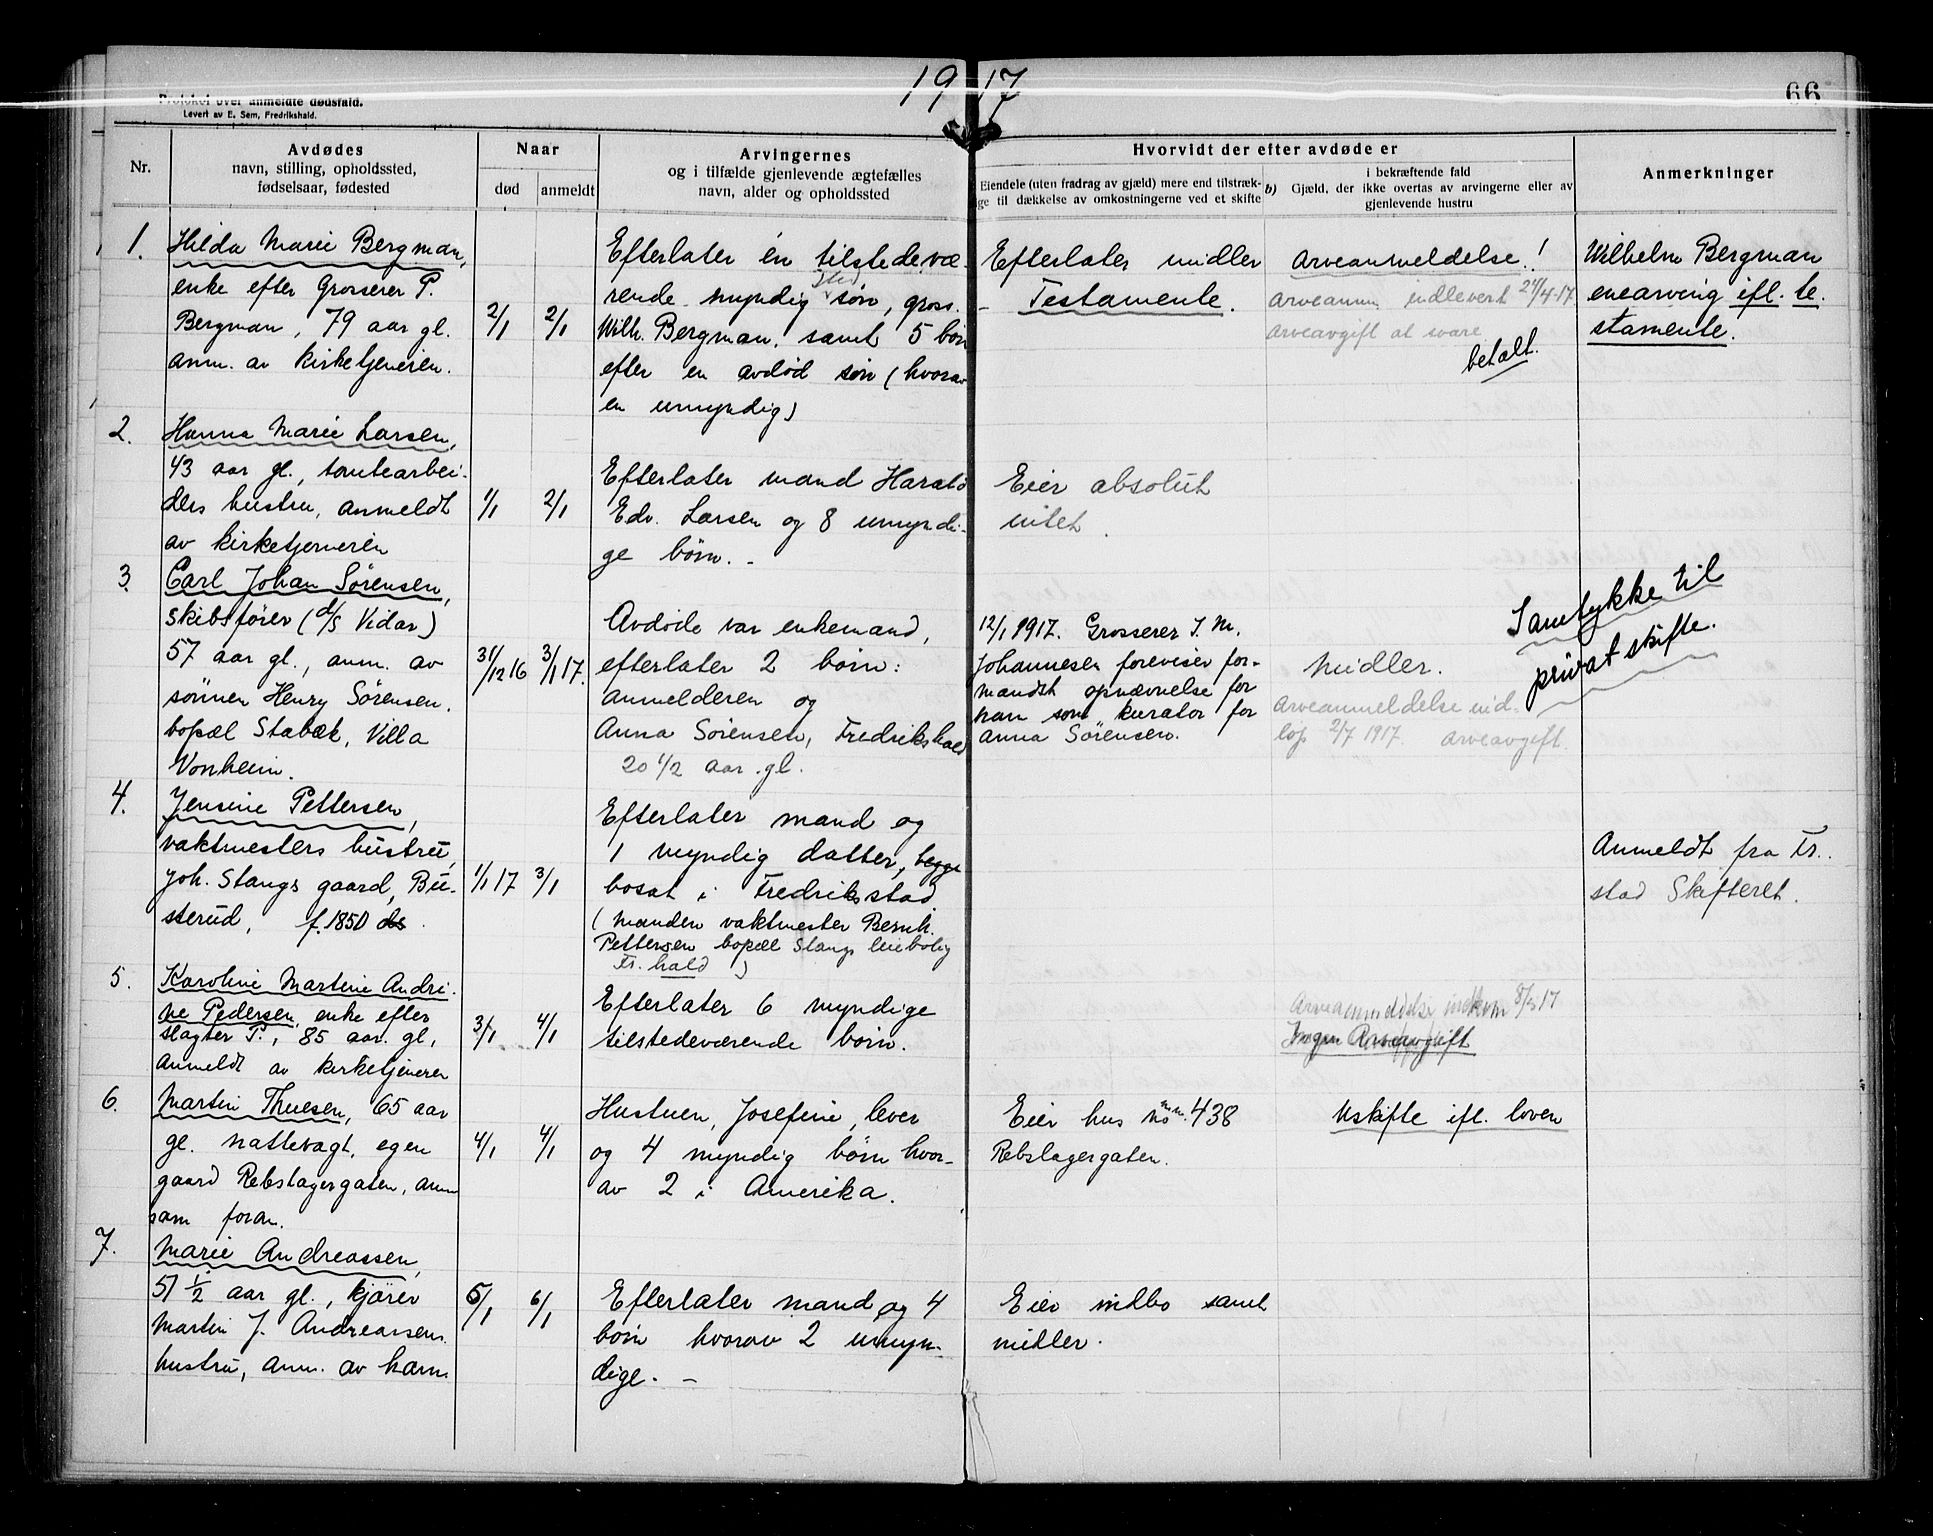 1917
66
Protokol over anmeldte dødsfald.
Levert av E. Sem, Fredrikshald.
Nr.
Avdødes
navn, stilling, opholdssted,
fødselsaar, fødested
Naar
død
anmeldt
Arvingernes
og i tilfælde gjenlevende ægtefælles
navn, alder og opholdssted
Hvorvidt der efter avdøde er
Eiendele (uten fradrag av gjæld) mere end tilstræk-
ge til dækkelse av omkostningerne ved et skifte
b)
i bekræftende fald
Gjæld, der ikke overtas av arvingerne eller av
gjenlevende hustru
Anmerkninger
1.
Hilda Marie Bergman,
enke efter Grosserer P.
Bergman, 79 aar gl.
anm. av kirketjeneren.
2/1
2/1
Efterlater én tilstedevæ-
rende myndig søn, gross.
Wilh. Bergman, samt 5 børn
efter en avdød søn (hvorav
en umyndig)
Efterlater midler
- Testamente.
Arveanmeldelse!
Arveanm. indlevert 24/4-17
Arveavgift at svare
betalt.
Wilhelm Bergman
enearving ifl. te-
stamente.
2.
Hanna Marie Larsen,
43 aar gl., tomtearbei-
ders hustru, anmeldt
av kirketjeneren
1/1
2/1
Efterlater mand Harald
Edv. Larsen og 8 umyndi-
ge børn. -
Eier absolut
intet.
3.
Carl Johan Sörensen,
skibsfører (d/s Vidar)
57 aar gl., anm. av
sönnen Henry Sørensen.
bopæl Stabæk, Villa
Vonheim.
31/12 16
3/1 17.
Avdøde var enkemand,
efterlater 2 børn:
anmelderen og
Anna Sörensen, Fredrikshald
20 1/2 aar gl.
12/1 1917. Grosserer J. M.
Johannesen foreviser for-
mandsk opnævnelse for
han som kurator for
Anna Sörensen.
Midler.
Arveanmeldelse ind-
løp 2/7 1917. Arveavgift.
Samtykke til
privat skifte.
4.
Jensine Pettersen,
vaktmesters hustru,
Joh. Stangs gaard, Bu-
sterud, f. 1850
1/1 17
3/1
Efterlater mand og
1 myndig datter, begge
bosat i Fredriksstad
(Manden vaktmester Bernh.
Pettersen bopæl Stangs leiebolig
Fr.hald)
Anmeldt fra Fr.-
stad Skifteret.
5.
Karoline Martine Andri-
ne Pedersen, enke efter
slagter P., 85 aar gl,
Anmeldt av kirketjeneren
3/1
4/1
Efterlater 6 myndige
tilstedeværende børn.
Arveanmeldelse indkom 8/3 17
Ingen Arveavgift
6.
Martin Thuesen, 65 aar
gl. nattevagt, egen
gaard Rebslagergaten, anm
som foran.
4/1
4/1
Hustuen, Josefine, lever
og 4 myndig børn hvor-
av 2 i Amerika.
Eier hus m.no. 438
Rebslagergaten.
Uskifte ifl. loven
7.
Marie Andreassen,
51 1/2 aar gl., kjører
Martin J. Andreassens
hustru, anm. av ham
5/1
6/1
Efterlater mand og 4
børn hvorav 2 umyn-
dige. -
Eier indbo samt
midler.